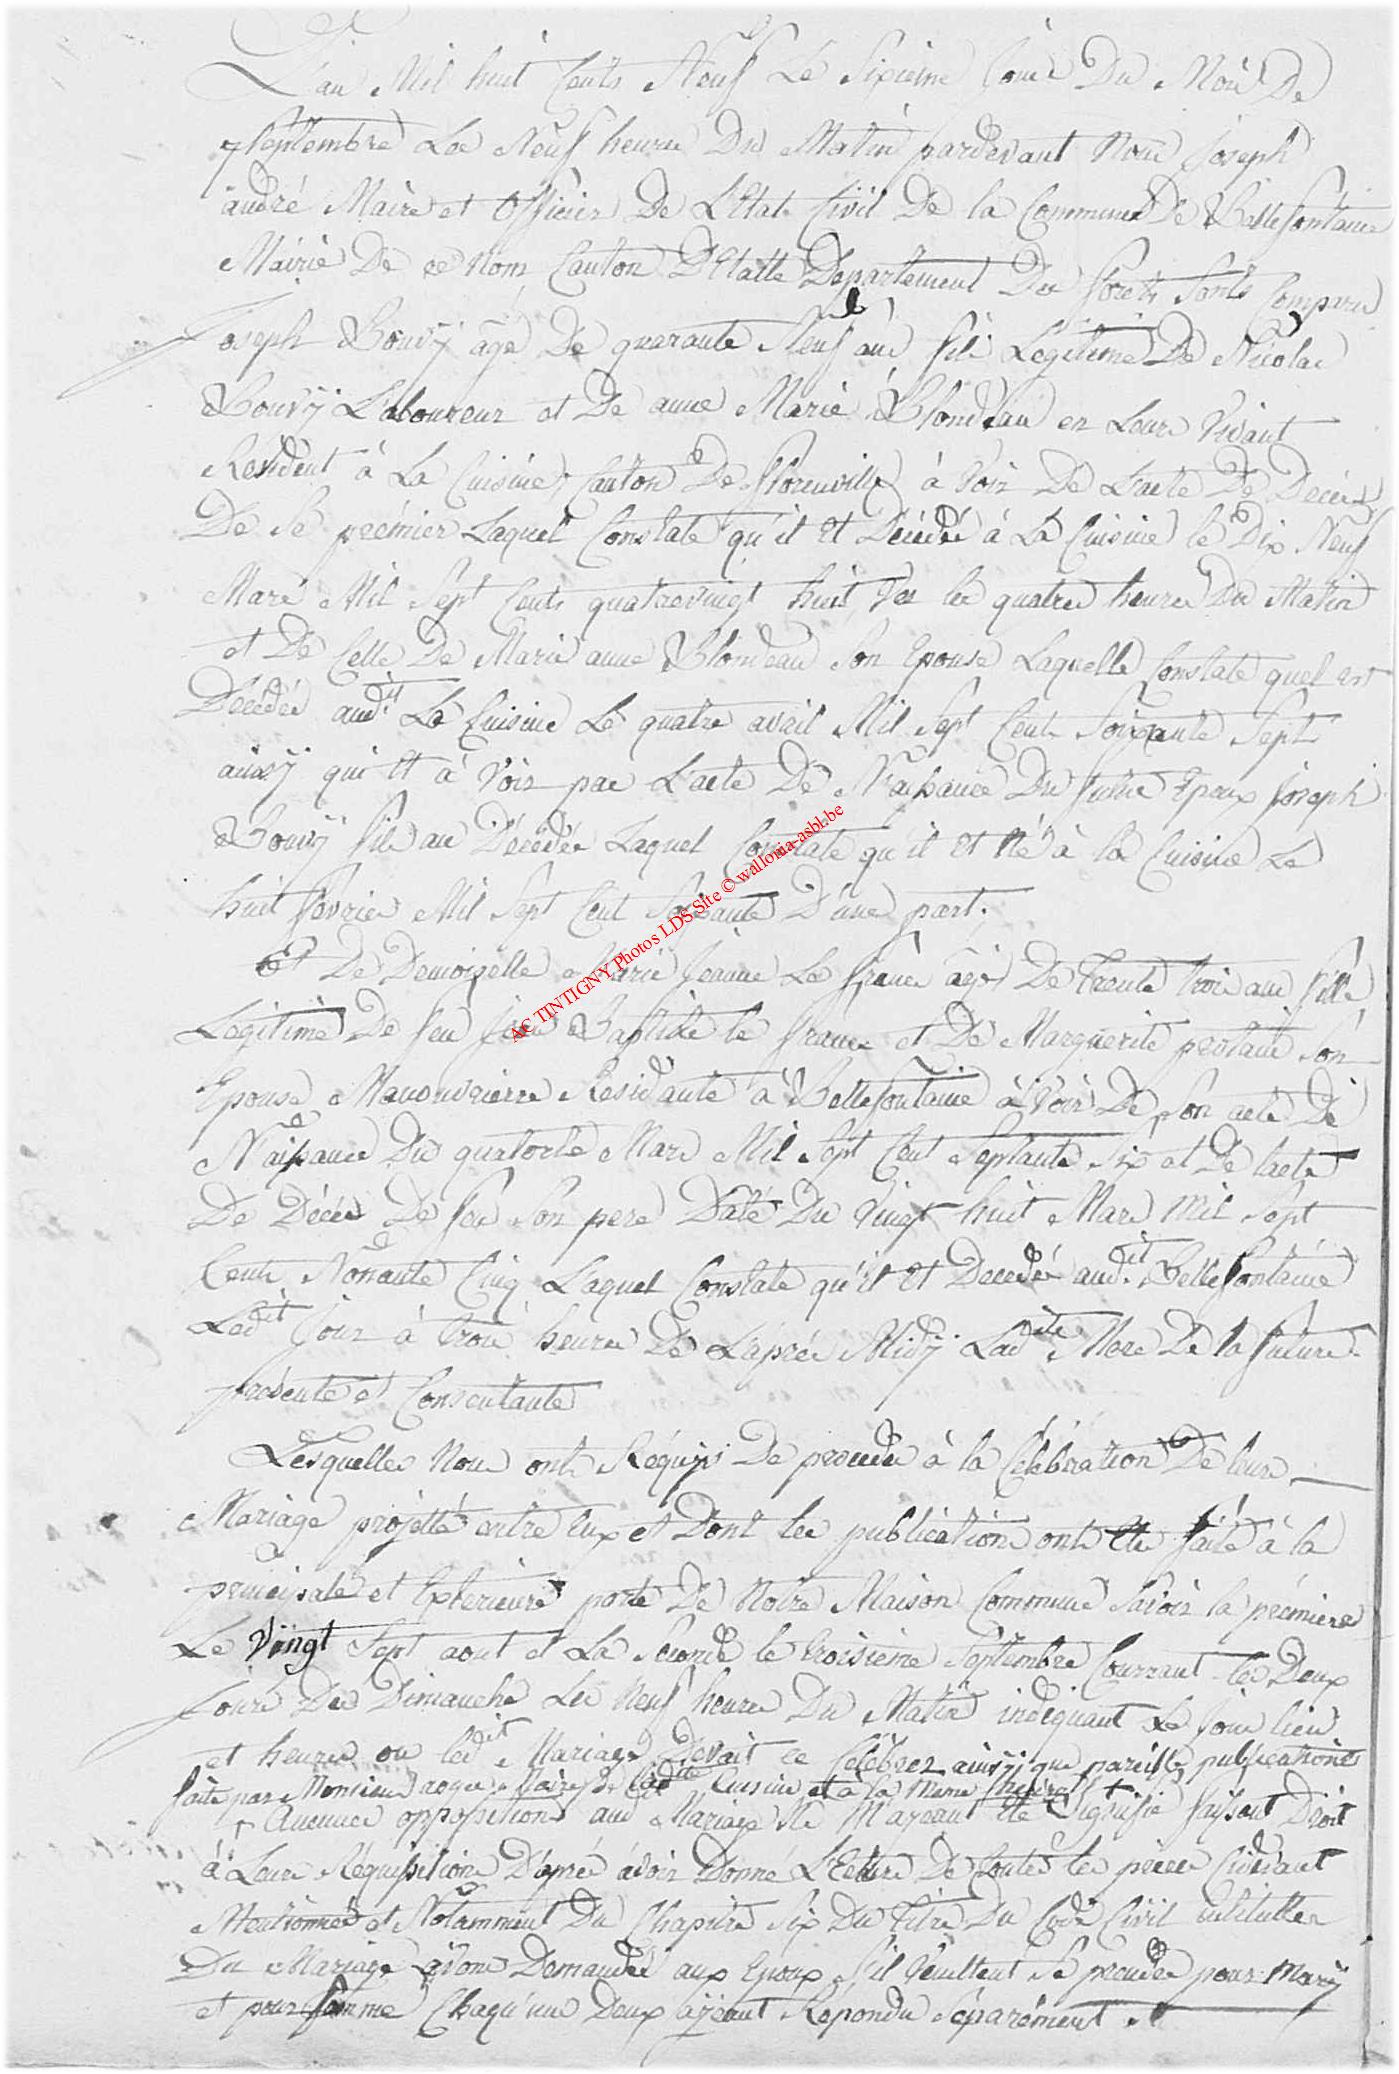 L'an Mil huit Cents Neuf Le Sixieme Jour Du Mois De
7 Septembre Les Neuf heures Du Matin pardevant Nous Joseph
andré Maire et Officier De L'Etat Civil De la Commune De Bellefontaine
Mairie De ce Nom Canton D'Etalle Departement Des forets Sonts Comparus
Joseph Bouvÿ agé De quarante Neuf ans fils Légitime De Nicolas
Bouvÿ Laboureur et De anne Marie Blondeau en Leurs Vivant
Resident à La Cuisine, Canton De florenville à Voir De L'acte De Décès
De Se prémier Laquel Constate qu'il Et Décédé à La Cuisine le Dix Neuf
Mars Mil Sept Cents quatrevingt huit, les quatres heures Du Matin
et De Celle De Marie anne Blondeau Son Epouse Laquelle Constate quel est
Décédée aud.it La Cuisine Le quatre avril Mil Sept Cents Soixante Sept
aussÿ qui Et à Voir par L'acte De Naissance Du futur Epoux Joseph
Bouvÿ fils au Décédés Laquel Constate qu'il Et Né à la Cuisine Le
huit fevrier Mil Sept Cent Soixante D'une part.
Et De Demoizelle Marie Jeanne Le franc agés De trente trois ans fille
Légitime De feu Jean Baptiste le franc et De Marguerite Son
Epouse Manouvrierre Residante à Bellefontaine à Voir De Son acte De
Naissance Du quatorze Mars Mil Sept Cent Septante Six et De lacte
De Décès De feu Son pere Daté Du Vingt huit Mars Mil Sept
Cents Nonante Cinq Laquel Constate qu'il Et Decedé aud.it Bellefontaine
Led.it Jour à trois heures De L'aprés Midÿ Lad.ite Mere De la future
présente et Consentante
Lesquelles Nous onts Réquis De proceder à la Célébration De leurs
Mariage projetté entre Eux et Dont les publications onts Eté faite à la
principale et Exterieure porte De Notre Maison Commune Savoir la prémiere
Le Vingt Sept aout et La Seconde le troisieme Septembre Courrant les Deux
Jours Des Dimanche Les Neuf heures Du Matin indiquant Le Jour lieu
et heures ou led.it Mariage Devait ce Celébrer ainsÿ que pareille publications
faite par Monsieur Maire De lad.ite Cuisine et à la Meme heure
+ Aucunes opposition aud. Mariage Ne Mayeant Eté Signifié faisant Droit
à Leurs Réquisitions D'aprés avoir Donné L'Ecture De toutes les pieces Cidevant
Mentionnés et Notamment Du Chapitre Six Du titre Du Code Civil intitullée
Du Mariage avons Demandés aux Epoux S'il Veuillent Se prendre pour Marÿ
et pour femme Chaqu'un Deux ayeant Répondu Séparément
AC TINTIGNY Photos LDS Site © wallonia-asbl.be